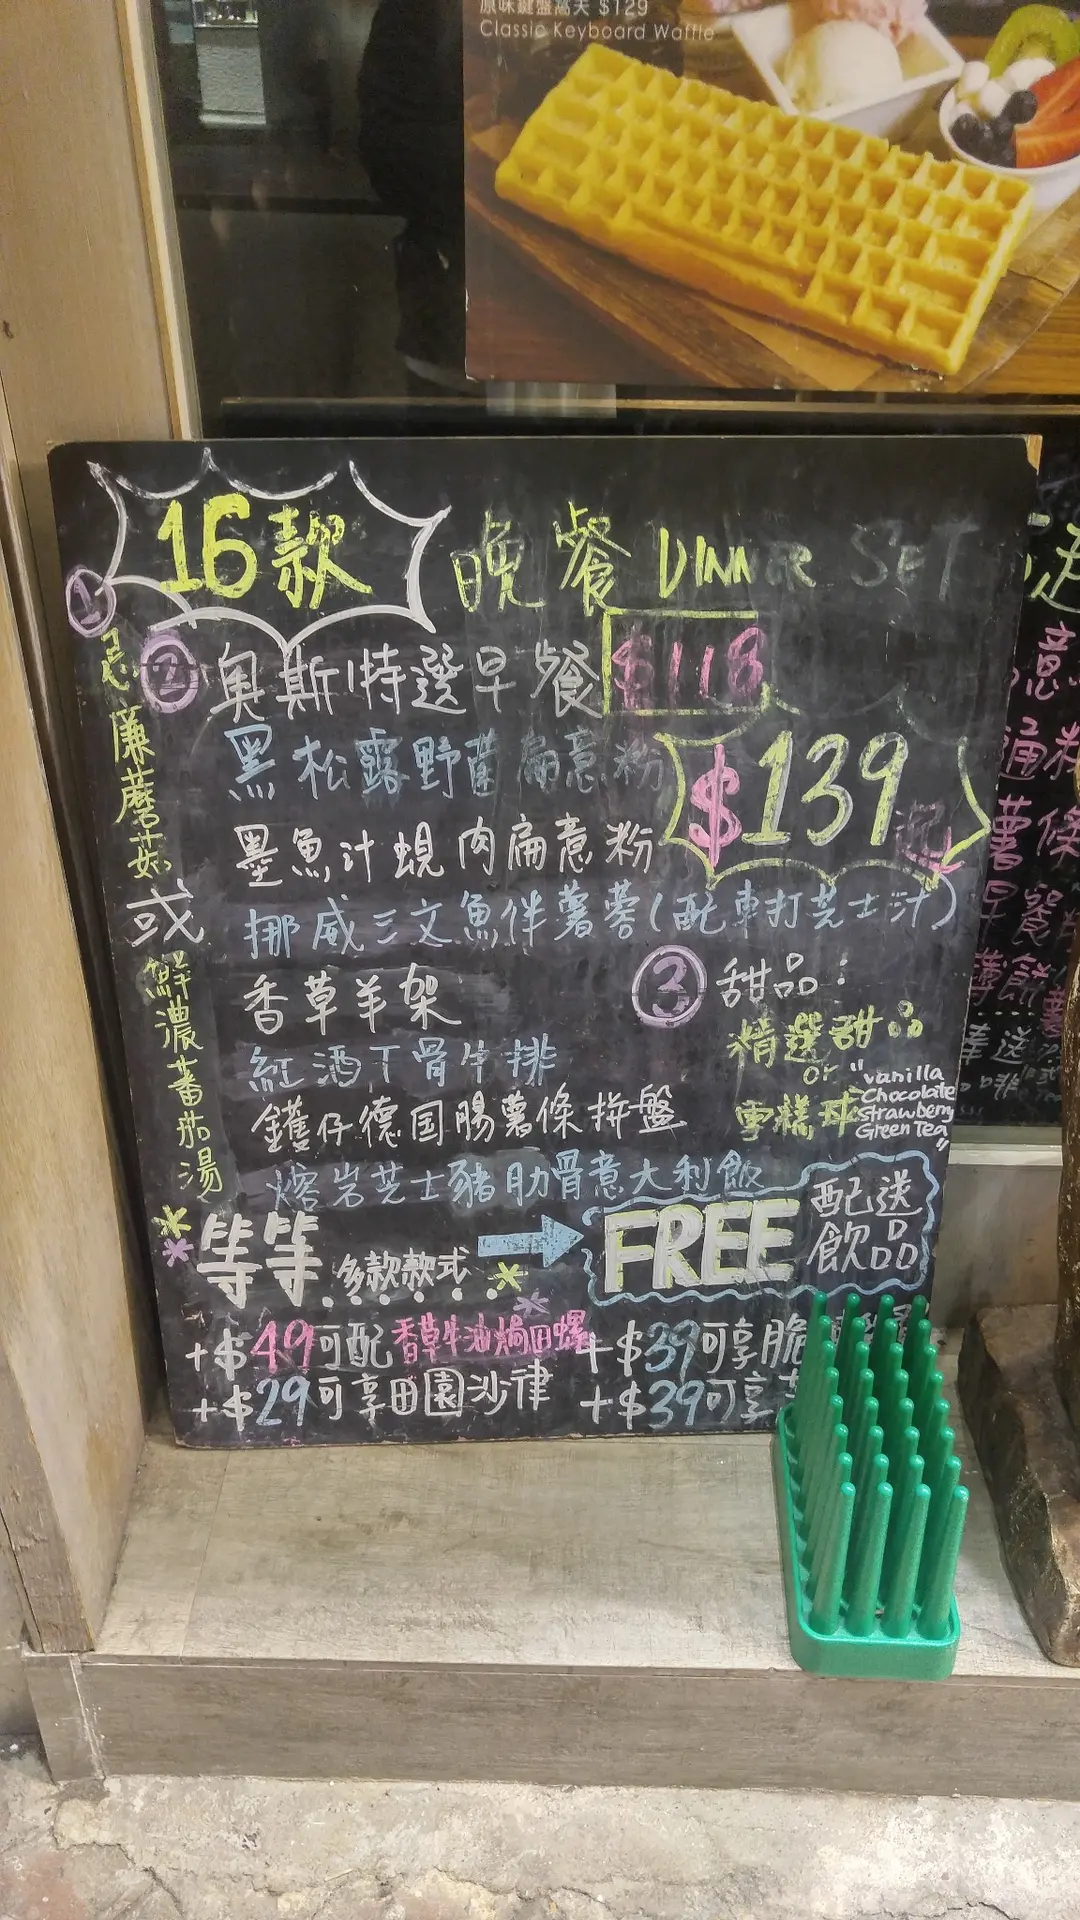 原味鍵盤窩夫 $129
Classic Keyboard Waffle
16款
晚餐 DINNER SET
①
忌廉蘑菇
或
鮮濃蕃茄湯
② 奧斯特選早餐 $118
黑松露野菌扁意粉
$139起
墨魚汁蜆肉扁意粉
挪威三文魚伴薯蓉(配車打芝士汁)
香草羊架
紅酒丁骨牛排
鑊仔德国腸薯條拼盤
熔岩芝士豬肋骨意大利飯
③ 甜品:
精選甜品
or
雪糕球
"Vanilla
Chocolate
Strawberry
Green Tea"
等等多款款式
FREE 配送
飲品
+$49可配香草牛油焗田螺
+$29可享田園沙律
+$39可享脆
+$39可享
意
通粉
薯條
早餐
薄餅
送